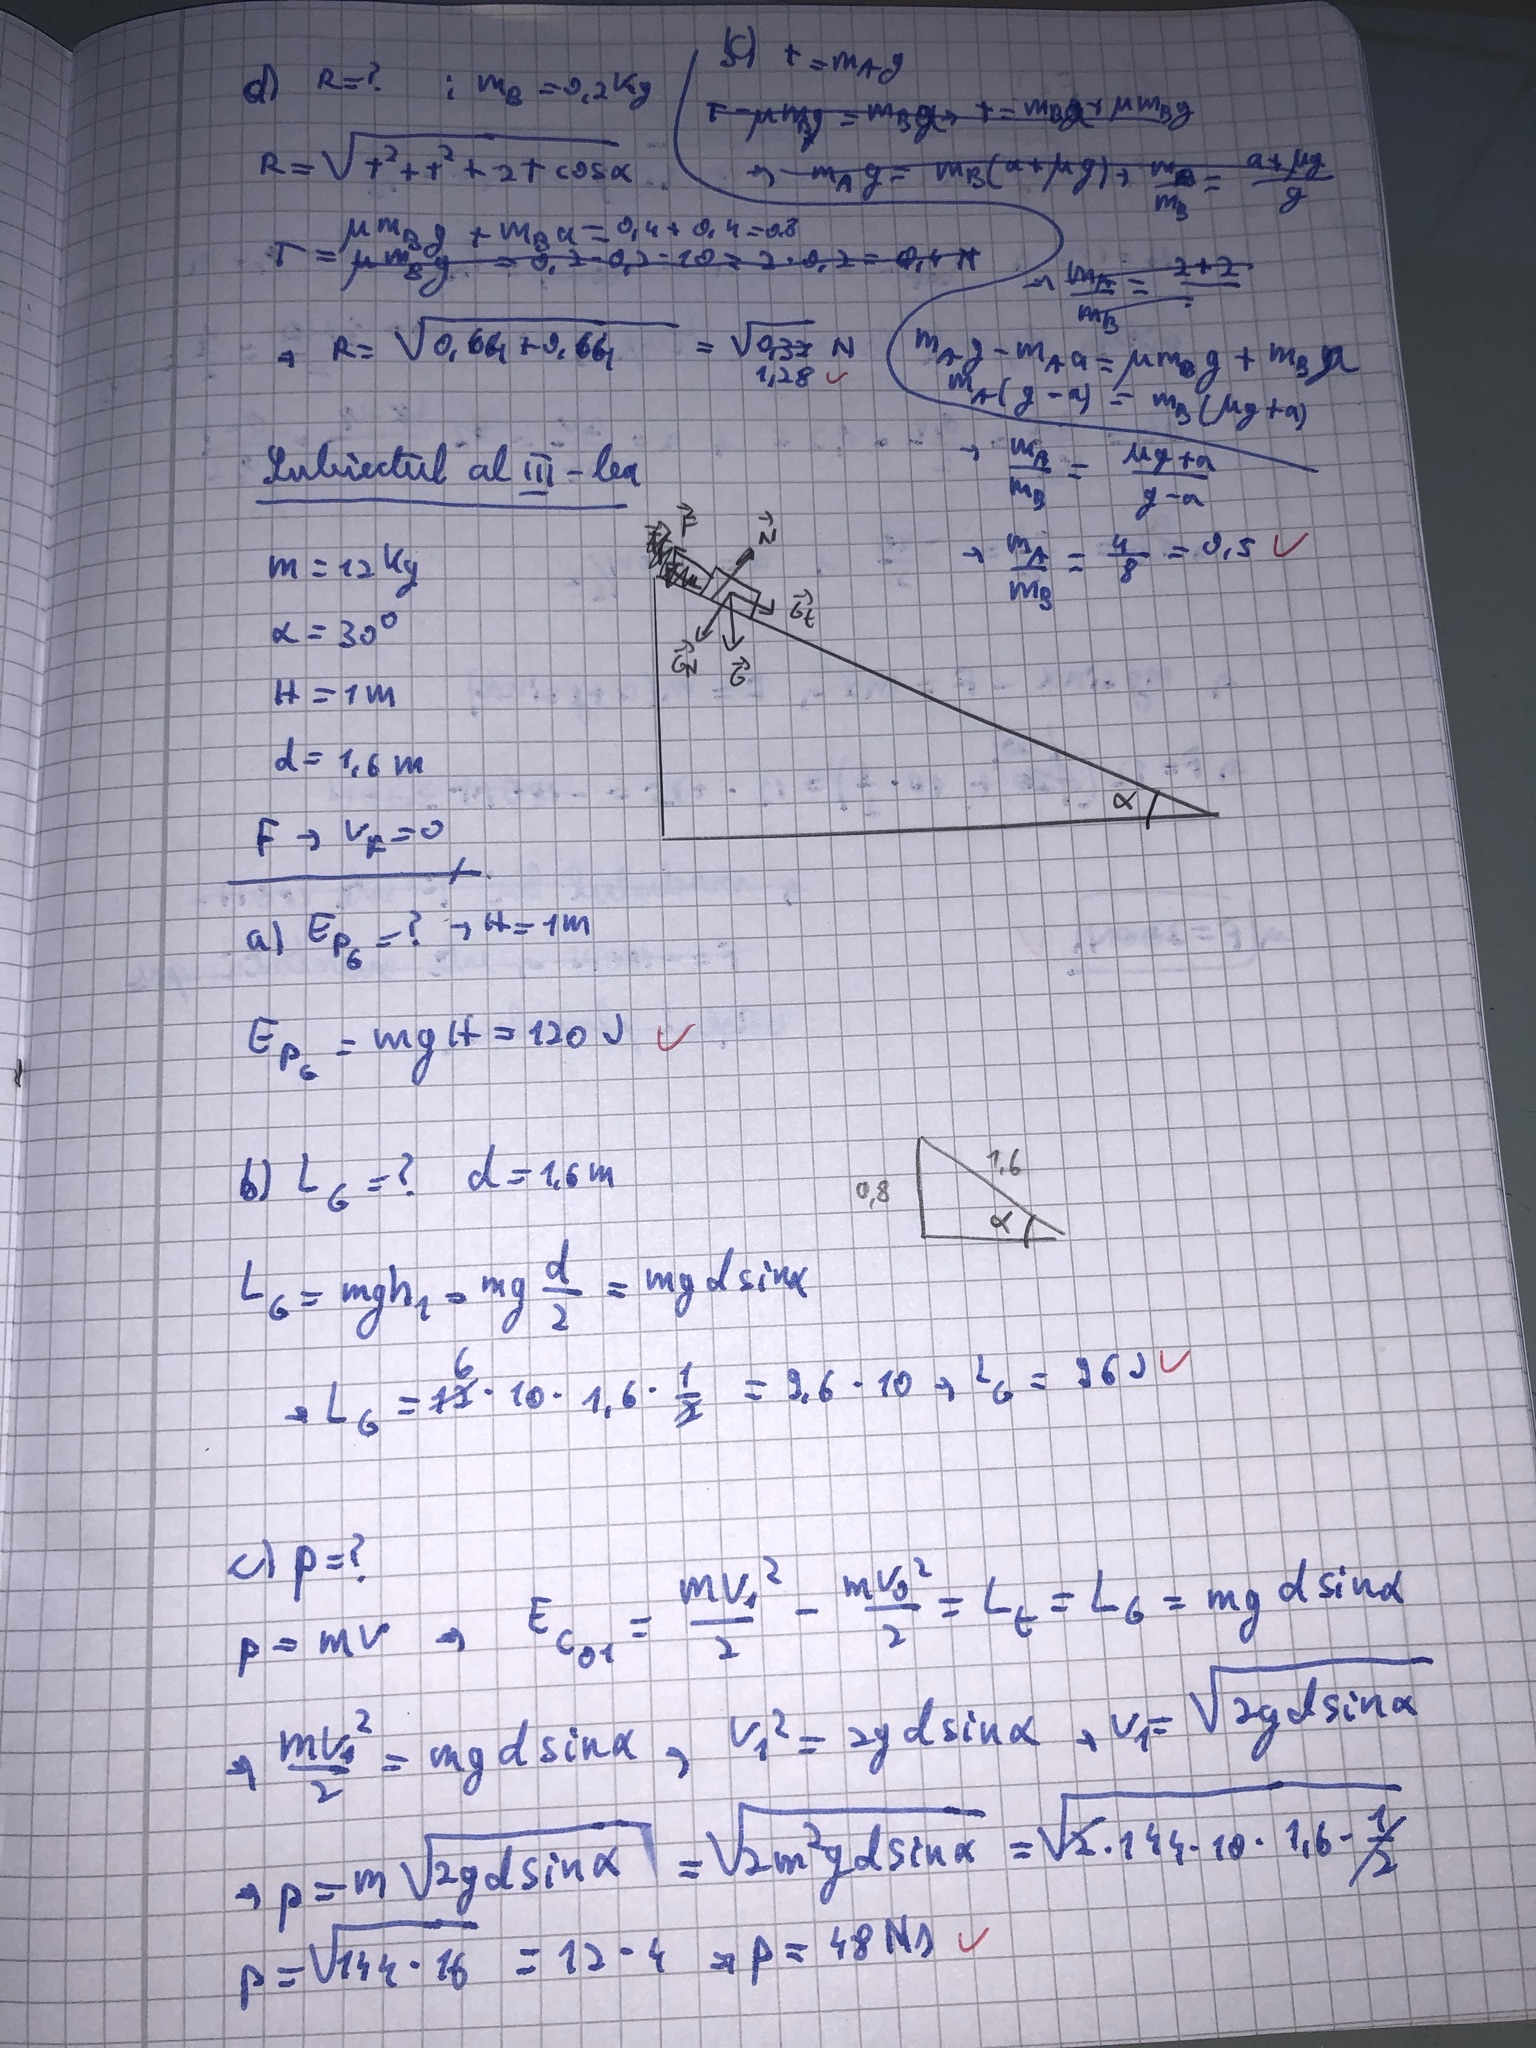 d) R=? ; mB = 0,2 Kg
R = √T² + T² + 2T cosα
T = μmBg + mBa = 0,4 + 0,4 = 0,8
μmBg = 0,2·0,2·10 = 2·0,2 = 0,4 N
→ R = √0,64 + 0,64 = √0,32 N
1,28 ✓
c) T = mAg
T - μmBg = mBa → T = mBa + μmBg
→ mAg = mB(a+μg) → mA/mB = (a+μg)/g
→ mA/mB = 2+2
mAg - mAa = μmBg + mBa
mA(g-a) = mB(μg+a)
→ mA/mB = (μg+a)/(g-a)
→ mA/mB = 4/8 = 0,5 ✓
Subiectul al III-lea
m = 12 Kg
α = 30°
H = 1m
d = 1,6 m
F → VF = 0
F
N
Gt
GN
G
α
a) EpG = ? → H = 1m
EpG = mgH = 120 J ✓
b) LG = ? d = 1,6 m
0,8
1,6
α
LG = mgh1 = mg d/2 = mg d sinα
6
→ LG = 12 · 10 · 1,6 · 1/2 = 9,6 · 10 → LG = 96 J ✓
c) p = ?
p = mv → Ec01 = mv1²/2 - mv0²/2 = Lt = LG = mg d sinα
→ mv1²/2 = mg d sinα → v1² = 2g d sinα → v1 = √2g d sinα
→ p = m √2g d sinα = √2m²g d sinα = √2·144·10·1,6·1/2
p = √144·16 = 12·4 → p = 48 Ns ✓